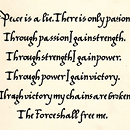 Peace is a lie. There is only pasion
Through passion I gain strength.
Through strength I gain power.
Through power I gain victory.
Through victory my chains are broken
The Force shall free me.